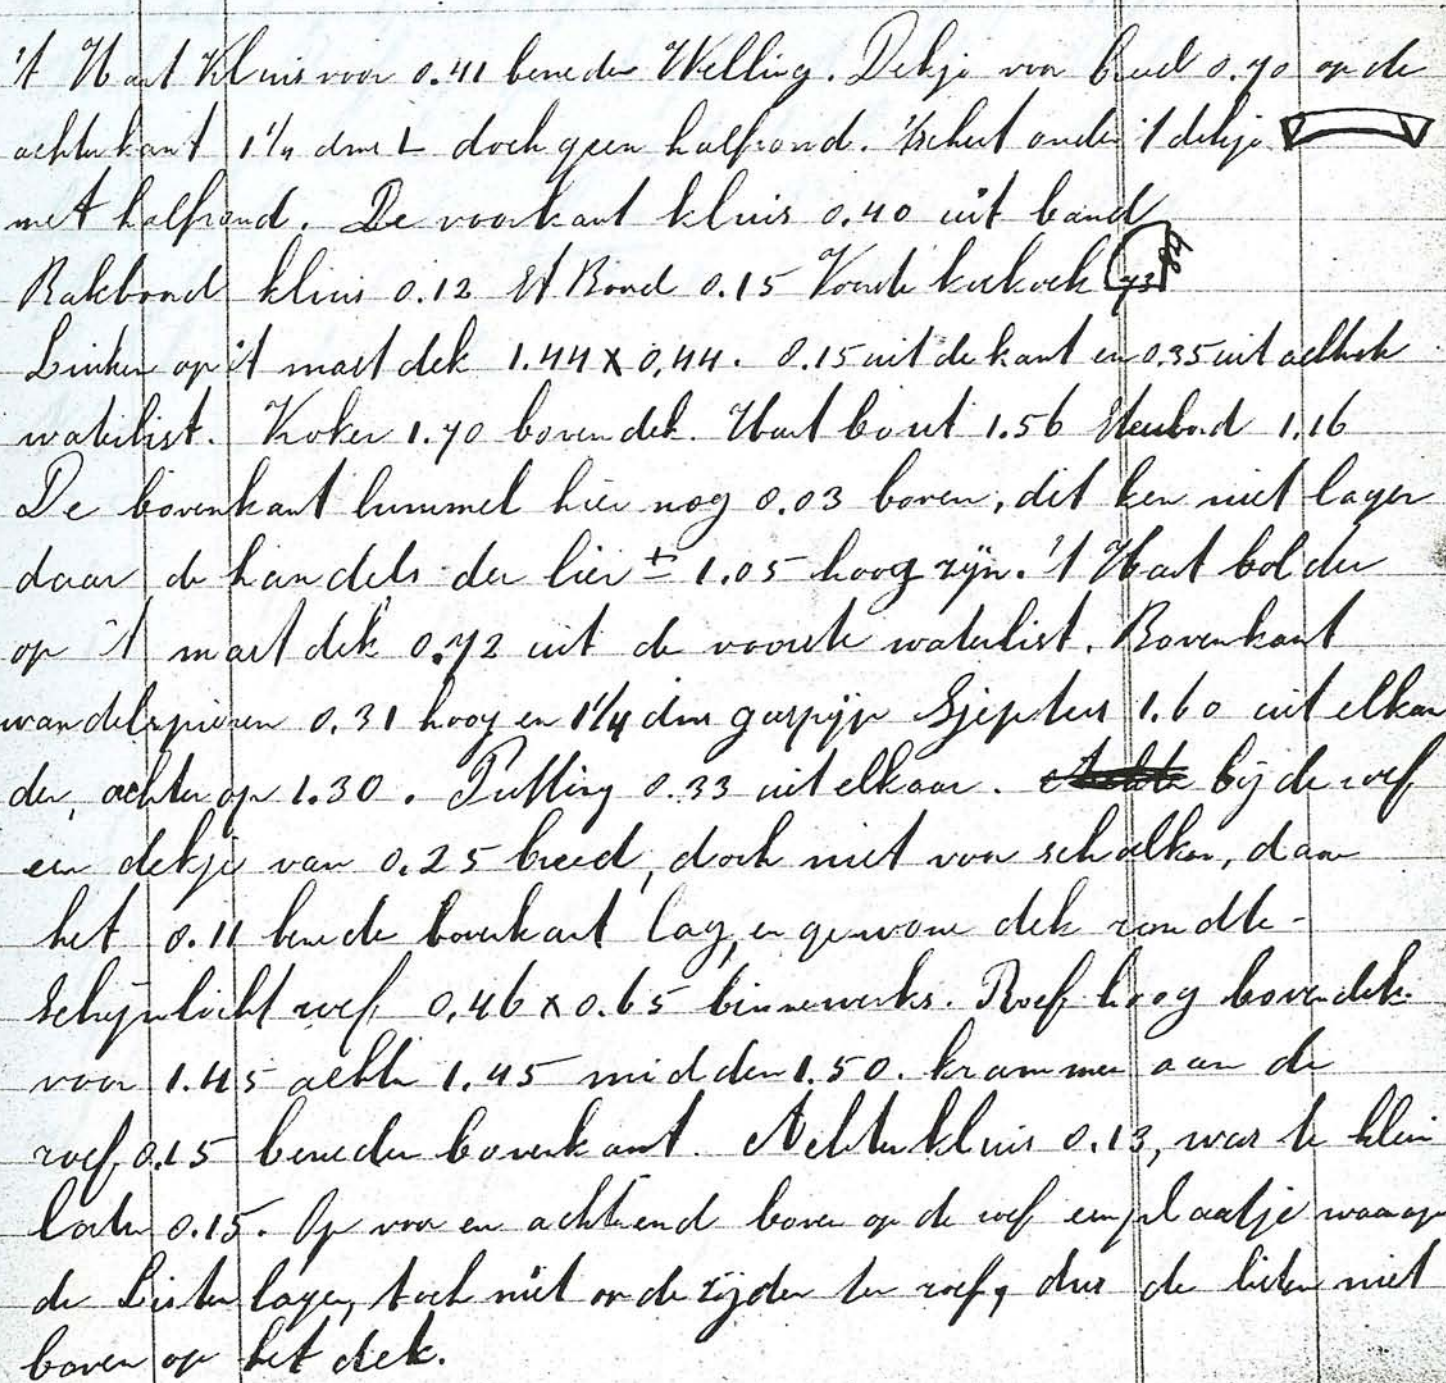 't Hart Kluis voor 0.41 beneden Welling. Dekje voor breed 0.70 op de
achterkant 1 1/4 dm L doch geen halfrond. 't schut onder 't dekje
met halfrond. De voorkant kluis 0.40 uit band
Bakboord kluis 0.12 St Boord 0.15 Voorste koekoek 73
Luiken op 't mast dek 1.44 x 0,44. 0.15 uit de kant en 0.35 uit achterste
waterlist. Koker 1.70 boven dek. Hart bout 1.56 Steubord 1.16
De bovenkant lummel hier nog 0.03 boven, dit ken niet lager
daar de handels der lier ± 1.05 hoog zijn. 't Hart bolder
op 't mast dek 0.72 uit de voorste waterlist. Bovenkant
wandelspieren 0.31 hoog en 1 1/4 dm gaspijp Sjepters 1.60 uit elkan
der, achter op 1.30. Putting 0.33 uit elkaar. bij de roef
een dekje van 0.25 breed, doch niet voor schalken, daar
het 0.11 beneden bovenkant lag, en gewone dek rondte-
Schijnlicht roef 0,46 x 0.65 binnewerks. Roef hoog boven dek
voor 1.45 achter 1.45 midden 1.50. krammen aan de
roef 0.15 beneden bovenkant. Achterkluis 0.13, was te klein
later 0.15. Op voor en achtend boven op de roef een plaatje waarop
de Listen lagen, toch niet on de zijden ter roef, dus de listen niet
boven op het dek.